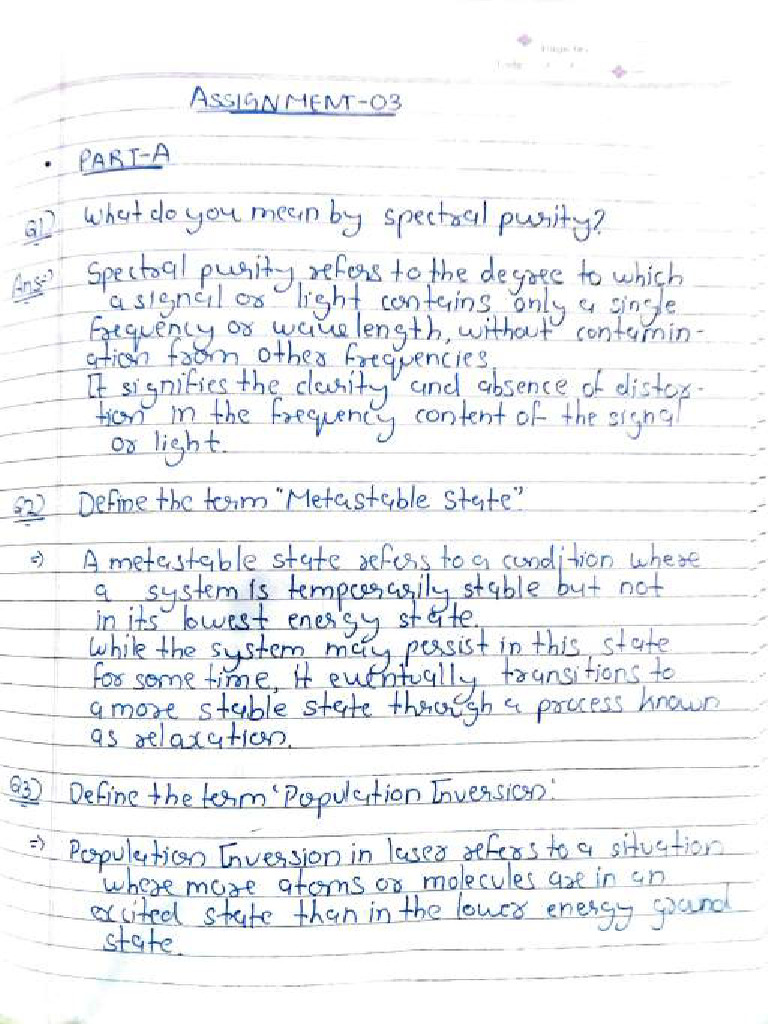 Page No.
ASSIGNMENT-03
• PART-A
Q1) What do you mean by spectral purity?
Ans:-) Spectral purity refers to the degree to which
a signal or light contains only a single
frequency or wavelength, without contamin-
ation from other frequencies
It signifies the clarity and absence of distor-
tion in the frequency content of the signal
or light.
Q2) Define the term "Metastable State"
=) A metastable state refers to a condition where
a system is temporarily stable but not
in its lowest energy state.
While the system may persist in this state
for some time, it eventually transitions to
a more stable state through a process known
as relaxation.
Q3) Define the term 'Population Inversion:
=) Population Inversion in laser refers to a situation
where more atoms or molecules are in an
excited state than in the lower energy ground
state.